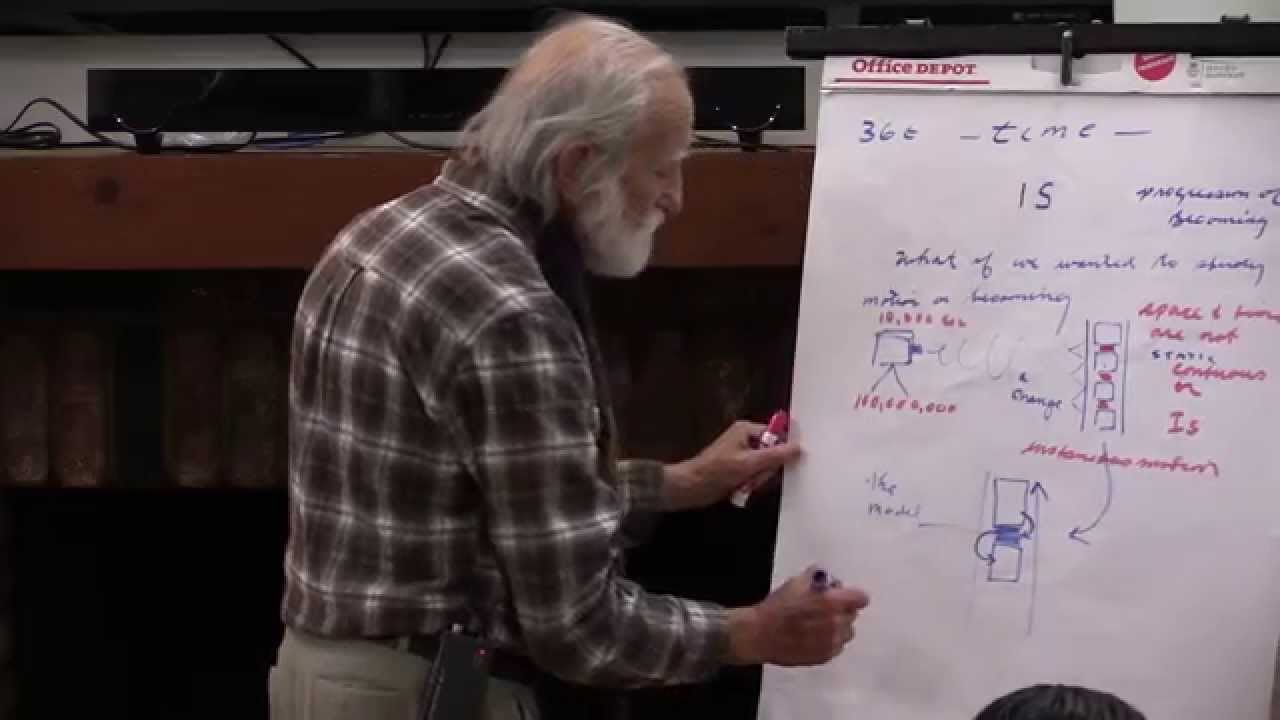 Office DEPOT
36E — time —
IS
progression of
Becoming
What if we wanted to study
motion or becoming
10,000 sec
100,000,000
a
change
space &
are not
STATIC
contiuous
or
Is
instaneous motion
The
model